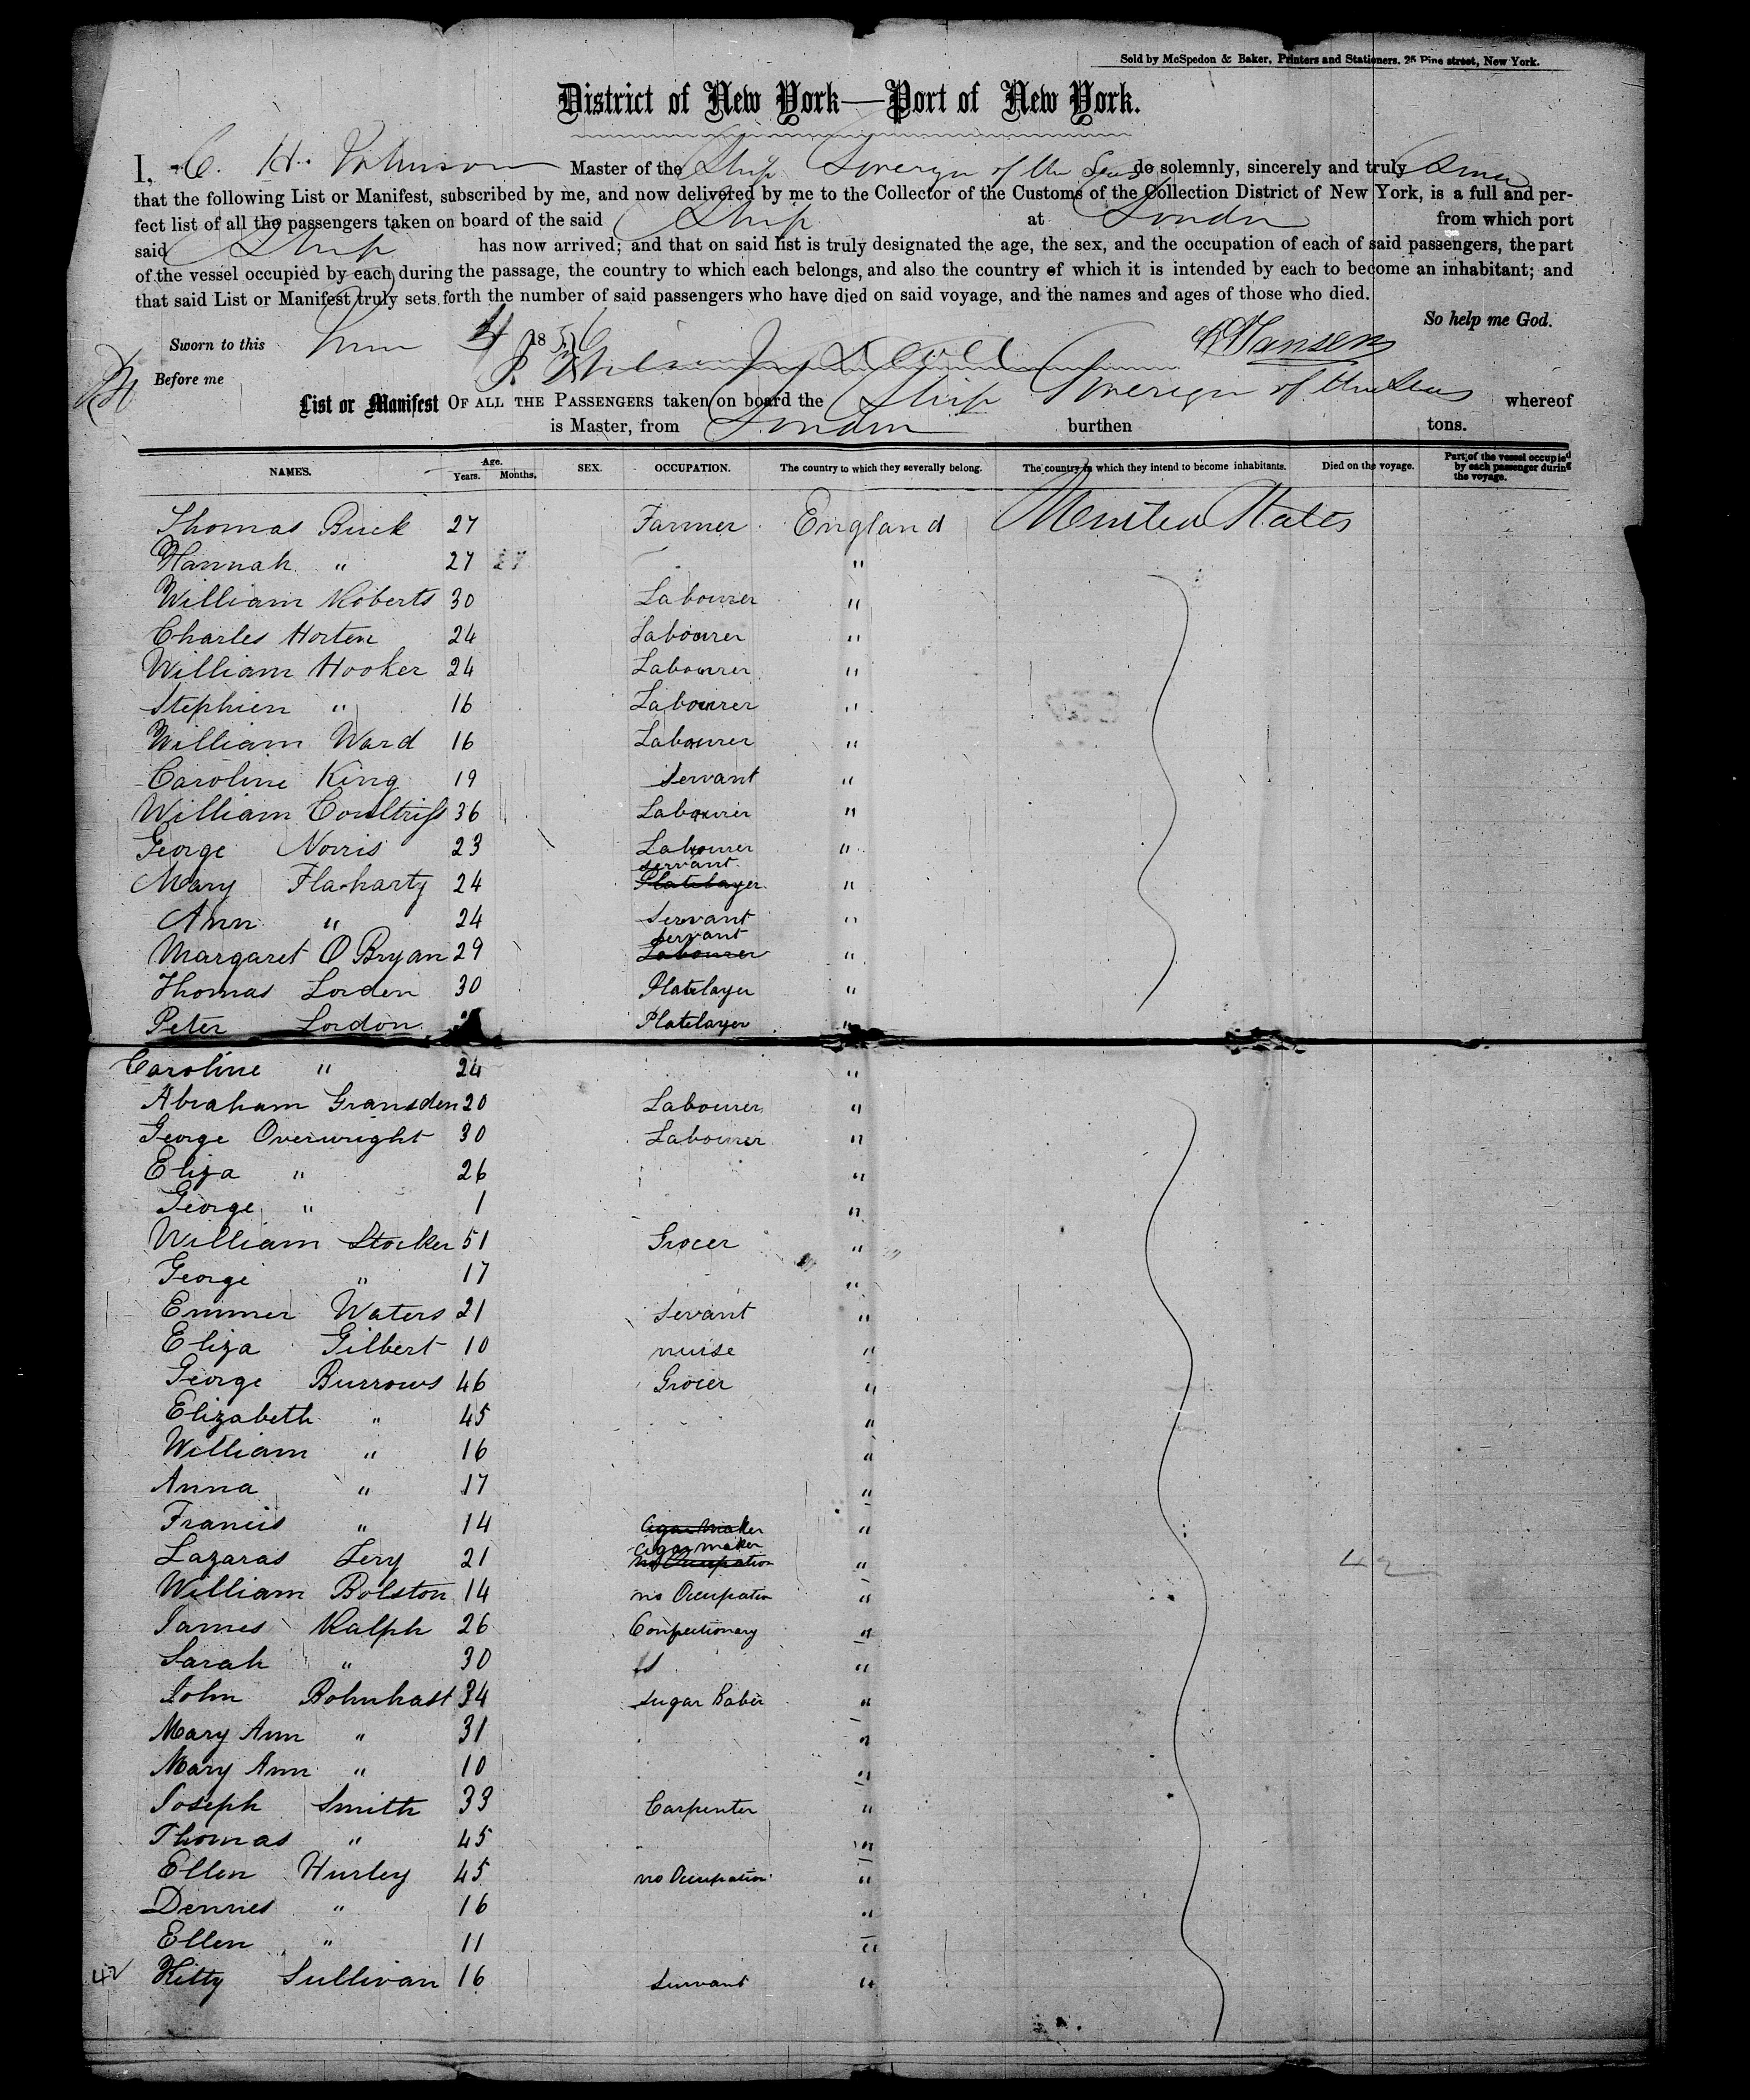 Sold by McSpedon & Baker, Printers and Stationers. 25 Pine street, New York.
District of New York—Port of New York.
I, C. H. Johnson Master of the Ship Sovereign of the Seas do solemnly, sincerely and truly Swear
that the following List or Manifest, subscribed by me, and now delivered by me to the Collector of the Customs of the Collection District of New York, is a full and per-
fect list of all the passengers taken on board of the said Ship at London from which port
said Ship has now arrived; and that on said list is truly designated the age, the sex, and the occupation of each of said passengers, the part
of the vessel occupied by each during the passage, the country to which each belongs, and also the country of which it is intended by each to become an inhabitant; and
that said List or Manifest truly sets forth the number of said passengers who have died on said voyage, and the names and ages of those who died.
So help me God.
Sworn to this June 4 1856
Before me
List or Manifest OF ALL THE PASSENGERS taken on board the Ship Sovereign of the Seas whereof
is Master, from London burthen tons.
NAMES. Age. Years. Months. SEX. OCCUPATION. The country to which they severally belong. The country to which they intend to become inhabitants. Died on the voyage. Part of the vessel occupied by each passenger during the voyage.
Thomas Buck 27 Farmer England United States
Hannah " 27 27 "
William Roberts 30 Labourer "
Charles Horten 24 Labourer "
William Hooker 24 Labourer "
Stephien " 16 Labourer "
William Ward 16 Labourer "
Caroline King 19 Servant "
William Coultriss 36 Labourer "
George Norris 23 Labourer "
servant
Mary Flaharty 24 Platelayer "
Ann " 24 Servant "
servant
Margaret O Bryan 29 Labourer "
Thomas Lorden 30 Platelayer "
Peter Lordon Platelayer "
Caroline " 24 "
Abraham Gransden 20 Labourer "
George Overwright 30 Labourer "
Eliza " 26 "
George " 1 "
William Stocker 51 Grocer "
George " 17 "
Emmer Waters 21 Sevant "
Eliza Gilbert 10 nurse "
George Burrows 46 Grocer "
Elizabeth " 45 "
William " 16 "
Anna " 17 "
Francis " 14 Cigar Maker "
Cigar maker
Lazaras Jery 21 no Occupation " 42
William Bolston 14 no Occupation "
James Ralph 26 Confectionary "
Sarah " 30 "
John Bohnhast 34 Sugar Baker "
Mary Ann " 31 "
Mary Ann " 10 "
Joseph Smith 33 Carpenter "
Thomas " 45 "
Ellen Hurley 45 no Occupation "
Dennes " 16 "
Ellen " 11 "
42 Kitty Sullivan 16 Survant "